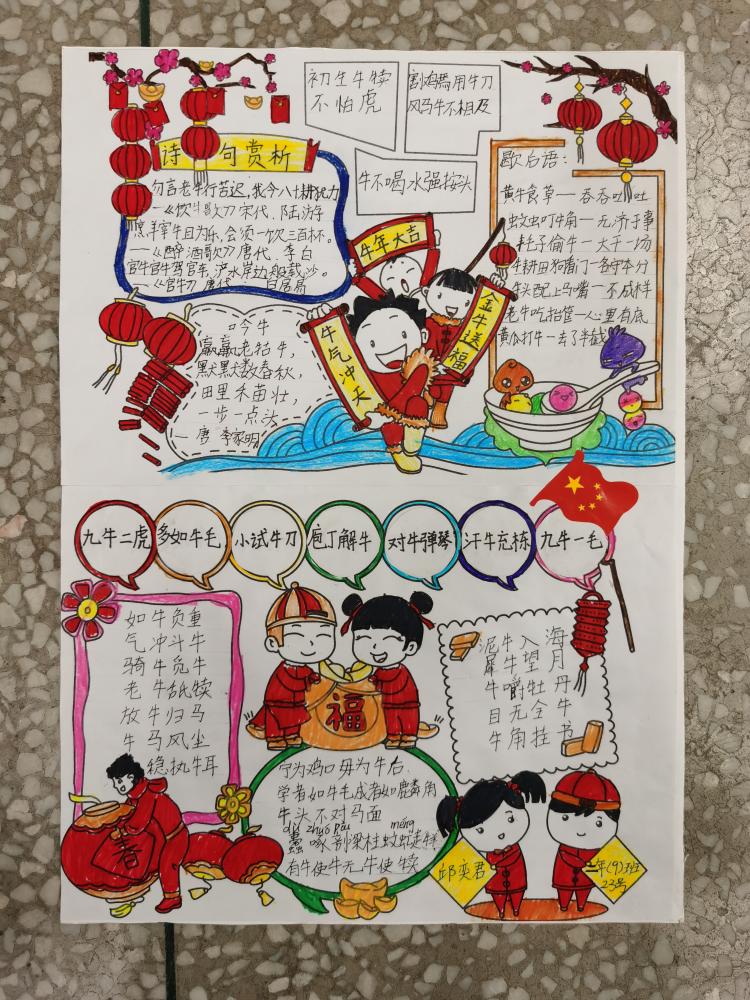 初生牛犊
不怕虎
割鸡焉用牛刀
风马牛不相及
牛不喝水强按头
诗句赏析
勿言老牛行苦迟,我今八十耕犹力
—《饮牛歌》宋代.陆游
烹羊宰牛且为乐,会须一饮三百杯。
—《醉酒歌》唐代.李白
官牛官牛驾官车,浐水岸边般载沙。
—《官牛》唐代
吟牛
赢赢老牯牛,
默默数春秋,
田里禾苗壮,
一步一点头
唐 李家明
牛年大吉
牛气冲天
金牛送福
歇后语:
黄牛食草—吞吞吐吐
蚊虫叮牛角—无济于事
杜子偷牛—大干一场
牛耕田狗看门—各守本分
牛头配上马嘴—不成样
老牛吃抬管—心里有底
黄瓜打牛—去了半截
九牛二虎
多如牛毛
小试牛刀
庖丁解牛
对牛弹琴
汗牛充栋
九牛一毛
如牛负重
气冲斗牛
骑牛觅牛
老牛舐犊
放牛归马
牛马风尘
稳执牛耳
福
春
泥牛入海
犀牛望月
牛嚼牡丹
目无全牛
牛角挂书
宁为鸡口毋为牛后
学者如牛毛成者如麟角
牛头不对马面
有牛使牛无牛使犊
邱奕君
二年(9)班
23号